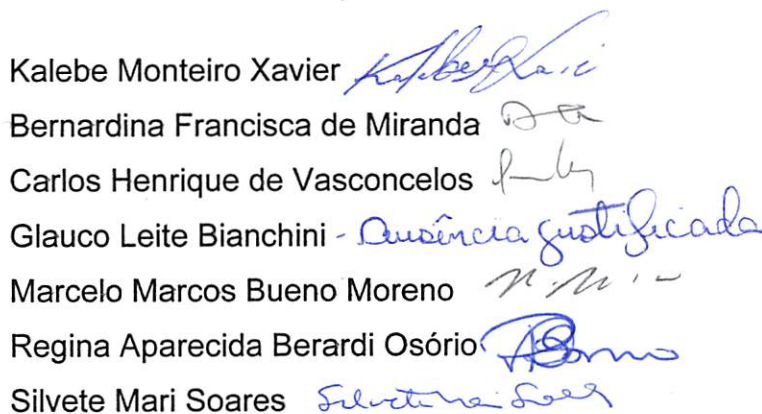 Kalebe Monteiro Xavier
Bernardina Francisca de Miranda
Carlos Henrique de Vasconcelos
Glauco Leite Bianchini - Ausência justificada
Marcelo Marcos Bueno Moreno
Regina Aparecida Berardi Osório
Silvete Mari Soares